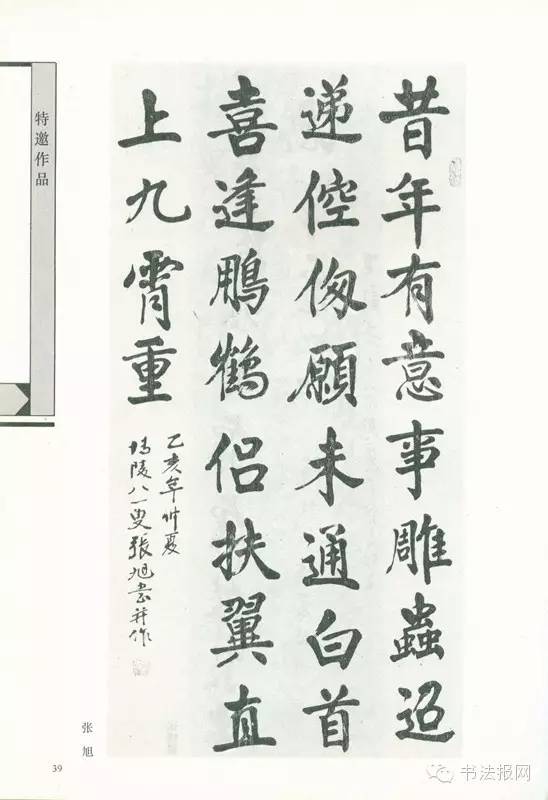 特邀作品
昔年有意事雕蟲迢
递倥偬願未通白首
喜逢鵬鶴侣扶翼直
上九霄重
乙亥年仲夏
博陵八一叟張旭書并作
张旭
39
书法报网